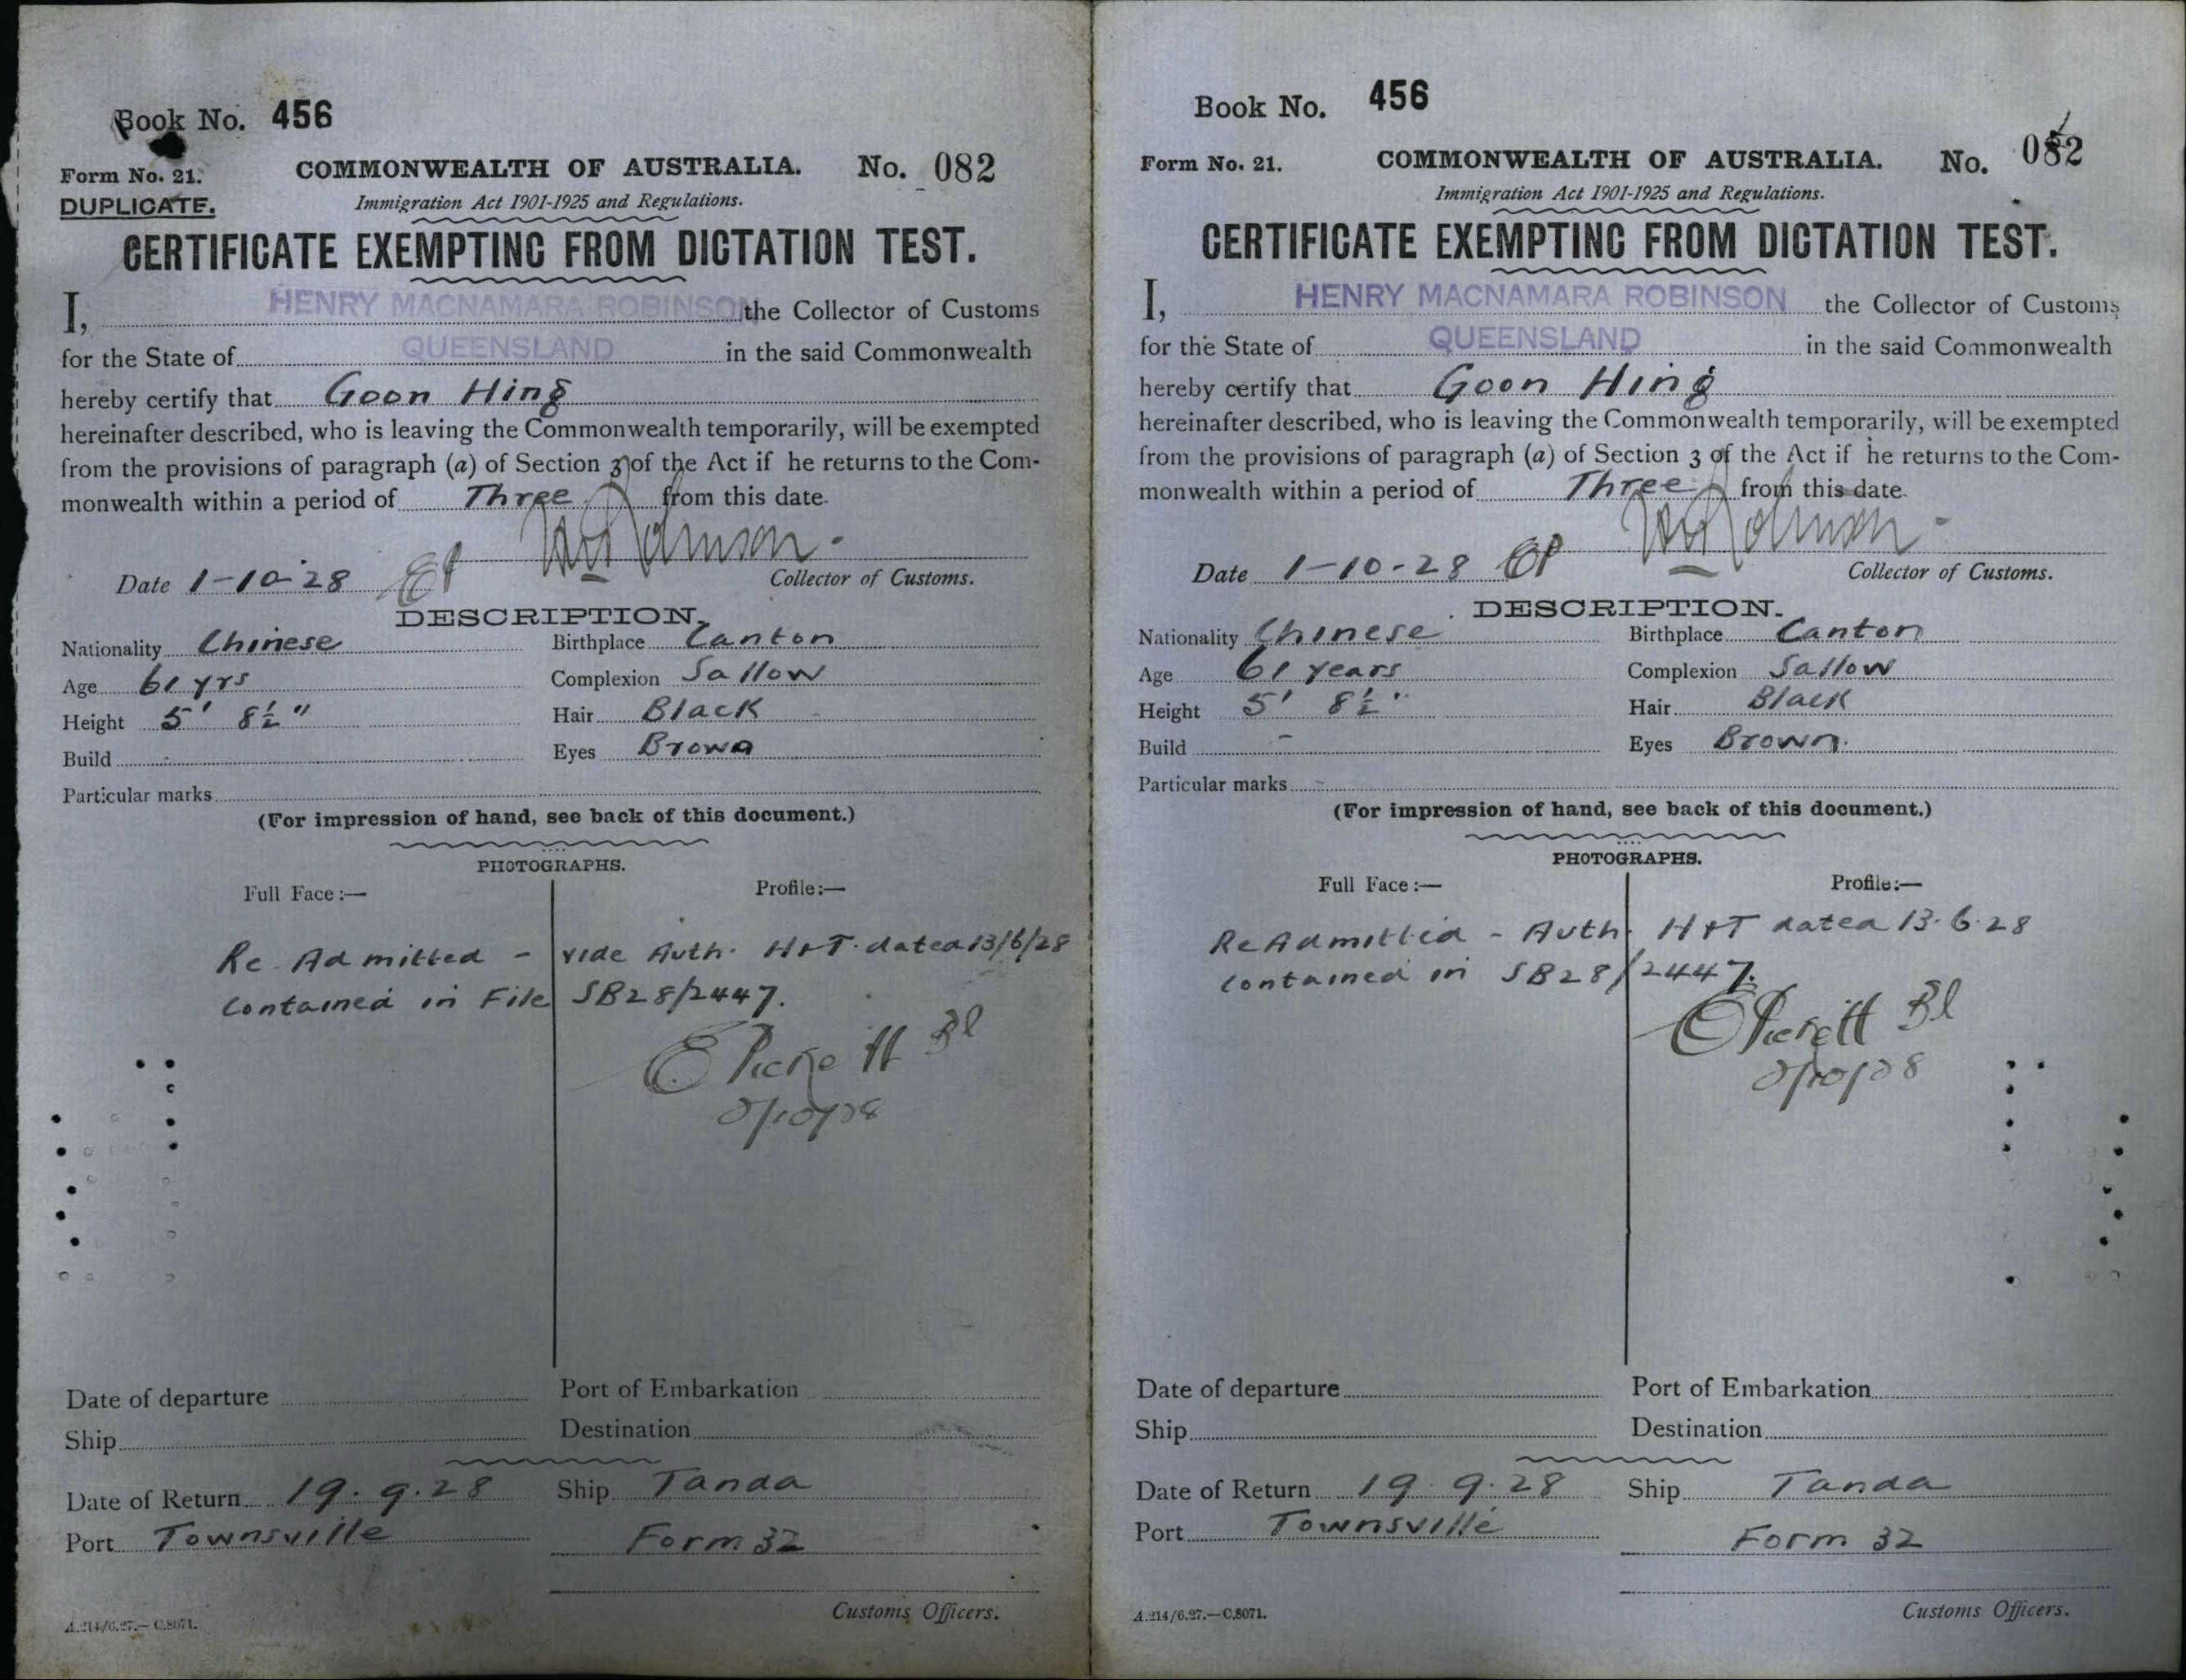 Book No. 456
Form No. 21.
COMMONWEALTH OF AUSTRALIA. No. 082
DUPLICATE.
Immigration Act 1901-1925 and Regulations.
CERTIFICATE EXEMPTING FROM DICTATION TEST.
I, HENRY MACNAMARA ROBINSON the Collector of Customs
for the State of QUEENSLAND in the said Commonwealth
hereby certify that Goon Hing
hereinafter described, who is leaving the Commonwealth temporarily, will be exempted
from the provisions of paragraph (a) of Section 3 of the Act if he returns to the Com-
monwealth within a period of Three from this date.
Date 1-10-28
Collector of Customs.
DESCRIPTION.
Nationality Chinese Birthplace Canton
Age 61 yrs Complexion Sallow
Height 5' 8½" Hair Black
Build Eyes Brown
Particular marks
(For impression of hand, see back of this document.)
PHOTOGRAPHS.
Full Face:— Profile:—
Re Admitted - vide Auth. H&T. dated 13/6/28
contained in File SB28/2447.
E Pickett
Date of departure Port of Embarkation
Ship Destination
Date of Return 19.9.28 Ship Tanda
Port Townsville Form 32
Customs Officers.
A.214/6.27.—C.8071.
Book No. 456
Form No. 21. COMMONWEALTH OF AUSTRALIA. No. 082
Immigration Act 1901-1925 and Regulations.
CERTIFICATE EXEMPTING FROM DICTATION TEST.
I, HENRY MACNAMARA ROBINSON the Collector of Customs
for the State of QUEENSLAND in the said Commonwealth
hereby certify that Goon Hing
hereinafter described, who is leaving the Commonwealth temporarily, will be exempted
from the provisions of paragraph (a) of Section 3 of the Act if he returns to the Com-
monwealth within a period of Three from this date.
Date 1-10-28
Collector of Customs.
DESCRIPTION.
Nationality Chinese Birthplace Canton
Age 61 years Complexion Sallow
Height 5' 8½" Hair Black
Build - Eyes Brown.
Particular marks -
(For impression of hand, see back of this document.)
PHOTOGRAPHS.
Full Face:— Profile:—
Re Admitted - Auth. H&T dated 13.6.28
contained in SB28/2447.
E Pickett
Date of departure Port of Embarkation
Ship Destination
Date of Return 19.9.28 Ship Tanda
Port Townsville Form 32
Customs Officers.
A.214/6.27.—C.8071.